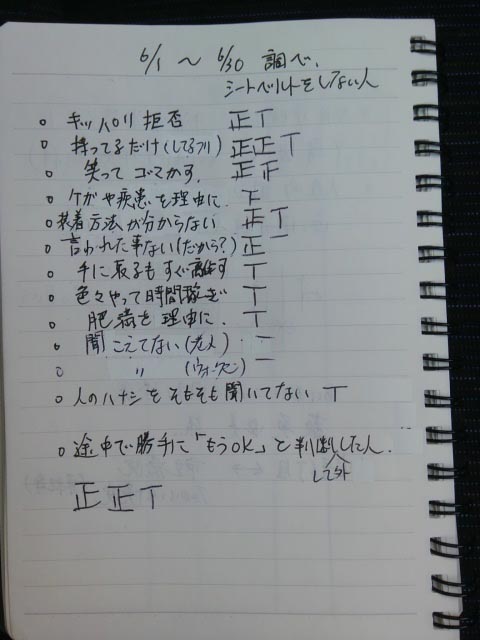 6/1 ～ 6/30 調べ.
シートベルトをしない人
○ キッパリ拒否 正丅
○ 持ってるだけ(してるフリ) 正正丅
○ 笑ってゴマかす. 正正
○ ケガや疾患を理由に. 下
○ 装着方法が分からない 正丅
○ 言われた事ない(だから?) 正一
○ 手に取るもすぐ離す 丅
○ 色々やって時間稼ぎ 丅
○ 肥満を理由に. 丅
○ 聞こえてない(老人) 一
○ 〃 (ウォークマン) 一
○ 人のハナシをそもそも聞いてない 丅
○ 途中で勝手に「もうOK」と判断した人.
して外
正正丅